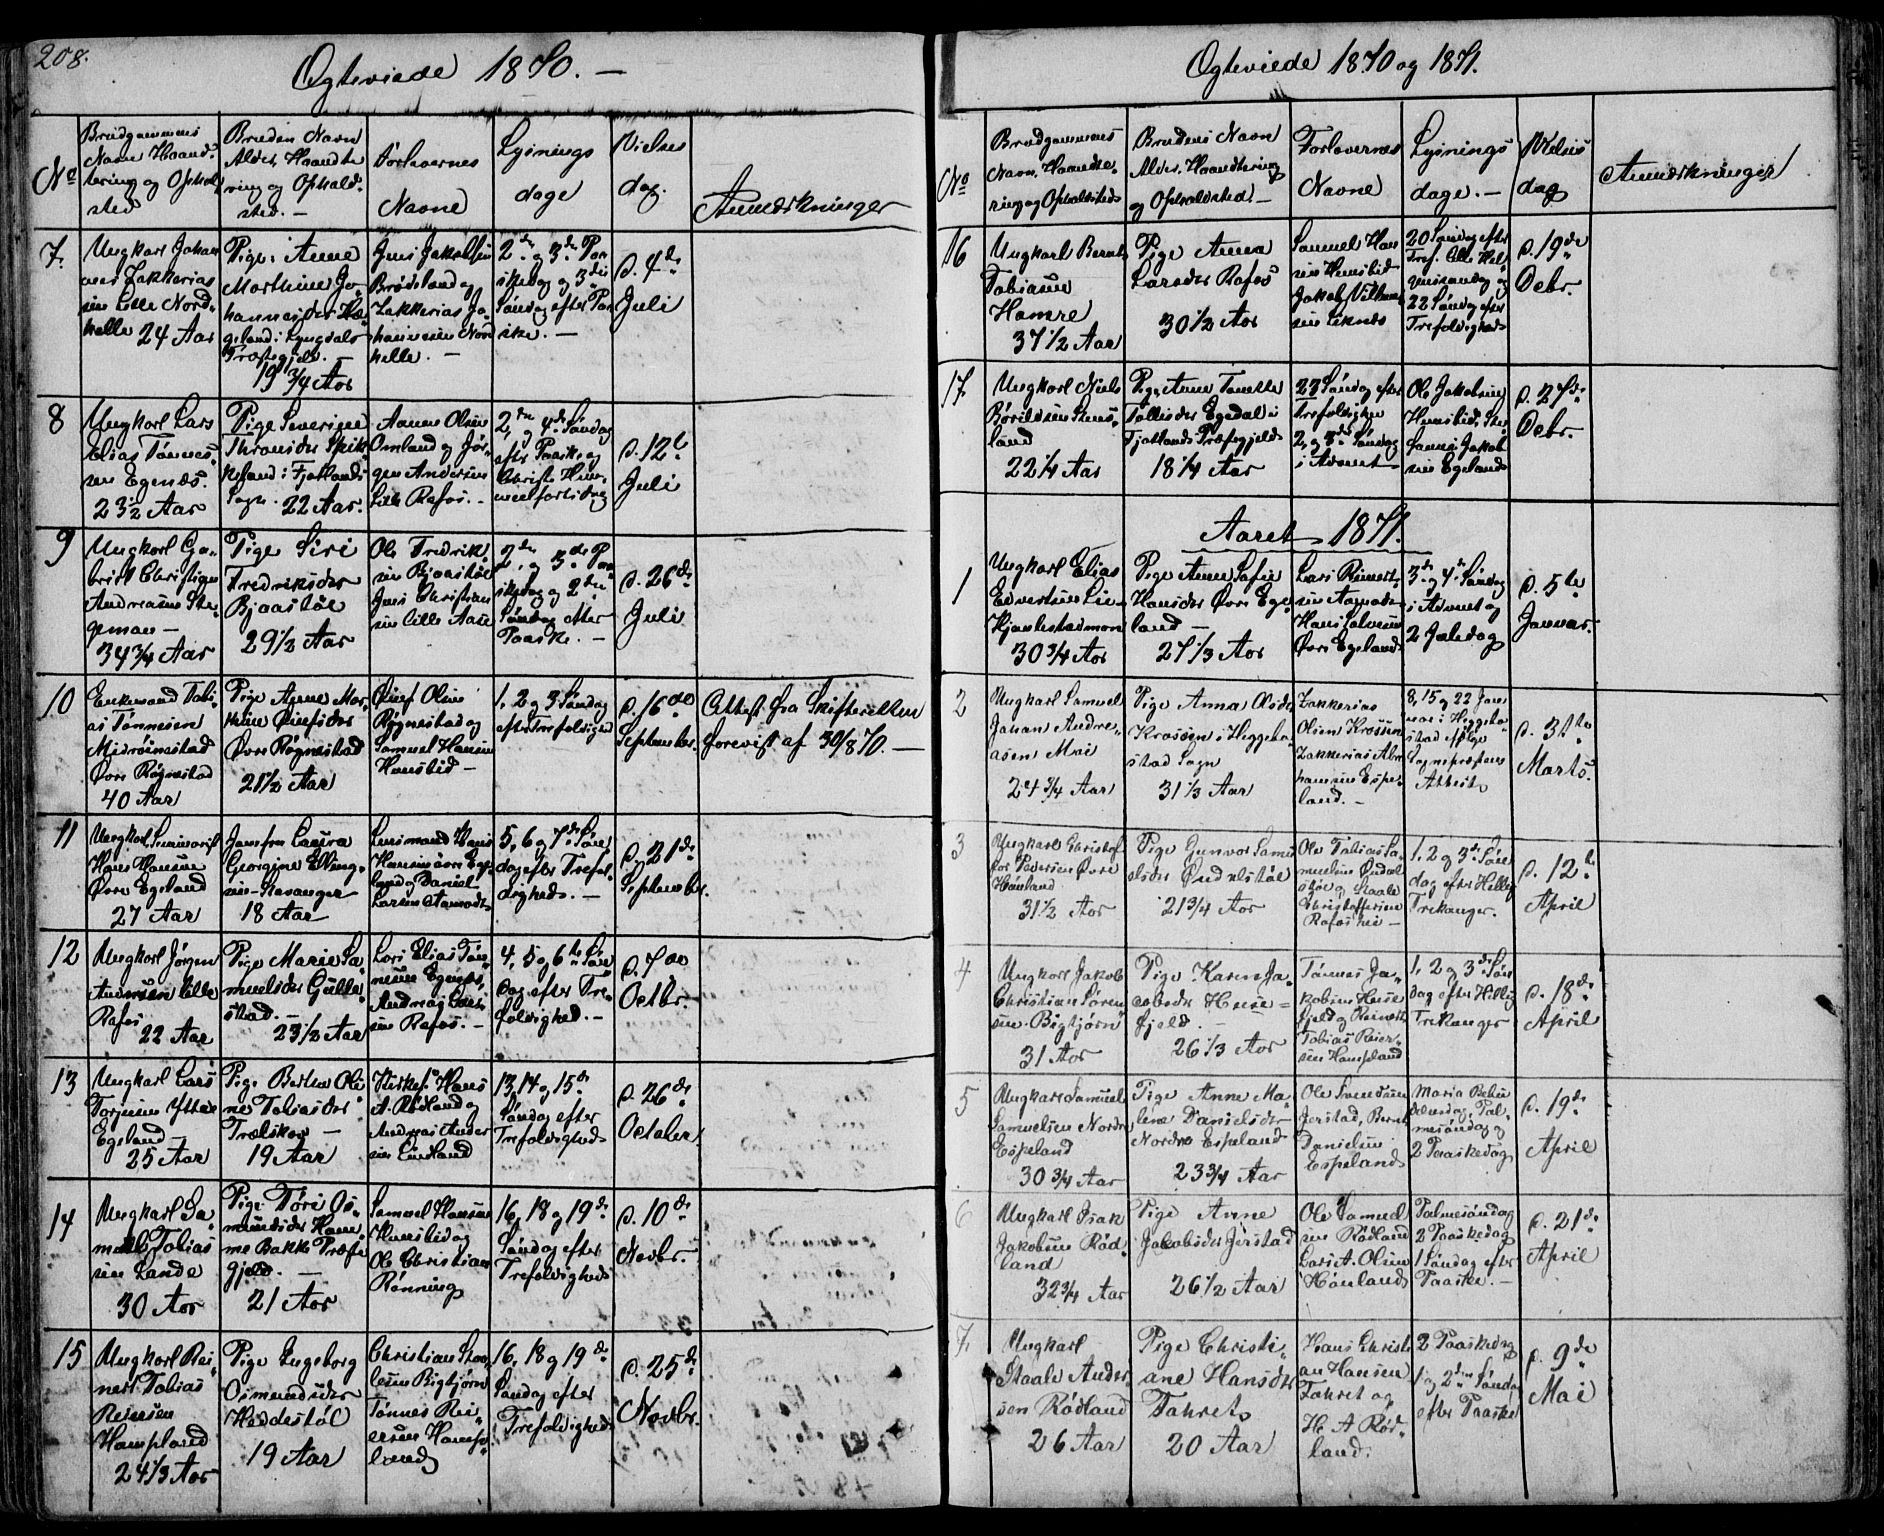 208.
Ogteviede 1870. —
No
Brudgommens
Navn Haand-
tering og Ophol-
sted
Brudens Navn
Alder Haandte
ring og Ophold-
sted. —
Forlovernes
Navne
Lysnings
dage
Vielses
dag.
Anmærkninger
7.
Ungkarl Johan
nes Zakkerias
sen Lille Nord-
helle 24 Aar
Pige Anne
Marthine Jo-
hannesdr
geland i Lyngdals
Præstegjeld. —
19 3/4 Aar
Jens Jakobsen
Brødsland og
Zakkerias Jo-
hannesen Nord
helle. —
2den og 3die Paa
skedag og 3die
Søndag efter Paa
ske. —
d. 4de
Juli
8
Ungkarl Lars
Elias Tønnes-
sen Egenæs.
23 1/2 Aar
Pige Severine
Thronsdr
i Fjotlands
Sogn. 22 Aar.
Aanen Olsen
Omland og Jør-
gen Andersen
Lille Rafos. —
2den og 4de Søndag
efter Paaske og
Christi Him-
melfartsdag
d. 12te
Juli
9
Ungkarl Ga-
briel Christian
Andreasen
34 3/4 Aar
Pige Siri
Fredriksdr
Bjaastøl
29 1/2 Aar
Ole Fredrik-
sen Bjaastøl
Jens Christian
sen Lille Aase
2den og 3die Paa
skedag og 2den
Søndag efter
Paaske. —
d. 26de
Juli
10
Enkemand Tobi-
as Tønnesen
Øvre Røgnestad
40 Aar
Pige Anne Mar-
thine
Øvre Røgnestad
21 1/2 Aar
Olsen
Røgnestad og
Samuel Hansen
Hamsbid —
1, 2 og 3 Søndag
efter Trefoldighed
d. 16de
September.
Attest fra Skifteretten
forevist af 30/8 70. —
11
Ungkarl, Seminarist
Hans Hansen
Øvre Egeland
27 Aar
Jomfru Laura
Georgine Elling-
sen Stavanger
18 Aar
Lensmand Hans
Hansen Øvre Ege
land og Daniel
Larsen Aamodt
5, 6 og 7de Søn
dag efter Trefol-
dighed. —
d. 21de
Septembr.
12
Ungkarl Jørgen
Andersen Lille
Rafos
22 Aar
Pige Marie Sa-
muelsdr Gulle-
stad. —
23 1/2 Aar
Lars Elias Tøn-
nesen Egenæs,
Andreas Lar-
sen Rafos. —
4, 5 og 6te Søn
dag efter Tre-
foldighed. —
d. 7de
Octbr.
13
Ungkarl Lars
Torjusen Ytter
Egeland —
25 Aar
Pige Bertha Oli
ne Tobiasdr
Trælskor —
19 Aar
Kirkes. Hans
A. Rødland og
Andreas Ander
sen Lindland
13, 14 og 15de
Søndag efter
Trefoldighed
d. 26de
October
14
Ungkarl Sa-
muel Tobias
sen Lande
30 Aar
Pige Tøri Os-
mundsdr Hom-
me Bakke Præste
gjeld. —
21 Aar
Samuel Hansen
Hamsbid og
Ole Christian
Rønning
16, 18 og 19de
Søndag efter
Trefoldighed
d. 10de
Novbr.
15
Ungkarl Rei-
nert Tobias
Reiersen
Hompland
24 1/3 Aar
Pige Ingeborg
Osmundsdr
Heddestøl
19 Aar
Christian
Bigtjørn
Tønnes Rei-
ersen Homp-
land
16, 18 og 19de
Søndag efter
Trefoldighed
d. 25de
Novbr.
Ogteviede 1870 og 1871.
No
Brudgommens
Navn, Haandte-
ring og Opholdsted
Brudens Navn
Alder, Haandtering
og Opholdsted —
Forlovernes
Navne
Lysnings
dage. —
Vielses
dag
Anmærkninger
16
Ungkarl Bernt
Tobiasen
Homre
37 1/2 Aar
Pige Anna
Larsdr Rafos
30 1/2 Aar
Samuel Han
sen Hamsbid
Jakob Vilhelm
sen Liknes
20 Søndag efter
Tref. Alle Hel-
gensøndag og
22 Søndag efter
Trefoldighed
d. 19de
Debr.
17.
Ungkarl Niels
Børildsen Stens-
land
22 1/4 Aar
Pige Anne Tonette
Tollisdr Egedal i
Fjotlands Præstegjeld
18 1/4 Aar
23 Søndag efter
Trefoldighed
2, og 3de Søndag
i Advent
Ole Jakobsen
Hamsbid,
Jakob
sen Egeland
d. 27de
Debr.
Aaret 1871.
1
Ungkarl Elias
Edvertsen Lie-
30 3/4 Aar
Pige Anne Sofie
Hansdr Øvre Ege-
land —
27 1/3 Aar
Lars Reinert-
sen Aamodt
Hans Salvesen
Øvre Egeland
3de og 4de Søndag
i Advent og
2 Juledag
d. 5te
Januar.
2
Ungkarl Samuel
Johan Andre-
asen Moi
24 3/4 Aar
Pige Anna Olsdr
Krossen i Heggebo-
stad Sogn
31 1/3 Aar
Zakkerias
Olsen Krossen
Zakkerias Abra
hamsen Espe-
land. —
8, 15 og 22 Janu
uar i Heggebo-
stad ifølge
Sognepræstens
Attest
d. 31te
Marts.
3
Ungkarl Christof
fer Pedersen Øvre
Hønland
31 1/2 Aar
Pige Gunvor Samu
elsdr Øndalstøl
21 3/4 Aar
Ole Tobias Sa-
muelsen Øndal
støl og Staale
Christoffersen
Rafoshei —
1, 2 og 3de Søn
dag efter Hellig
Trekonger.
d. 12te
April
4
Ungkarl Jakob
Christian Søren
sen Bigtjørn
31 Aar
Pige Karen Ja-
cobsdr Huse-
fjeld. —
26 1/3 Aar
Tønnes Ja-
kobsen Huse
fjeld og Reinert
Tobias Reier-
sen Hompland
1, 2 og 3de Søn
dag efter Hellig
Trekonger
d. 18de
April
5
Ungkarl Samuel
Samuelsen Nordre
Espeland
30 3/4 Aar
Pige Anne Ma-
lene Danielsdr
Nordre Espeland
23 3/4 Aar
Ole Svendsen
Jerstad, Bernt
Danielsen
Espeland
Maria Bebu
delsesdag, Pal-
mesøndag og
2 Paaskedag
d. 19de
April
6
Ungkarl Isak
Jakobsen Rød-
land
32 3/4 Aar
Pige Anne
Jakobsdr Jerstad
26 1/2 Aar
Ole Samuel
sen Rødland
Lars A. Olsen
Hønland
Palmesøndag
2 Paaskedag
1 Søndag efter
Paaske. —
d. 21de
April
7.
Ungkarl
Staale Ander
sen Rødland
26 Aar
Pige Christi-
ane Hansdr
Fahret
20 Aar
Hans Christi
an Hansen
Fahret og
H. A. Rød-
land.
2 Paaskedag
1 og 2den Søndag
efter Paaske
d. 9de
Mai